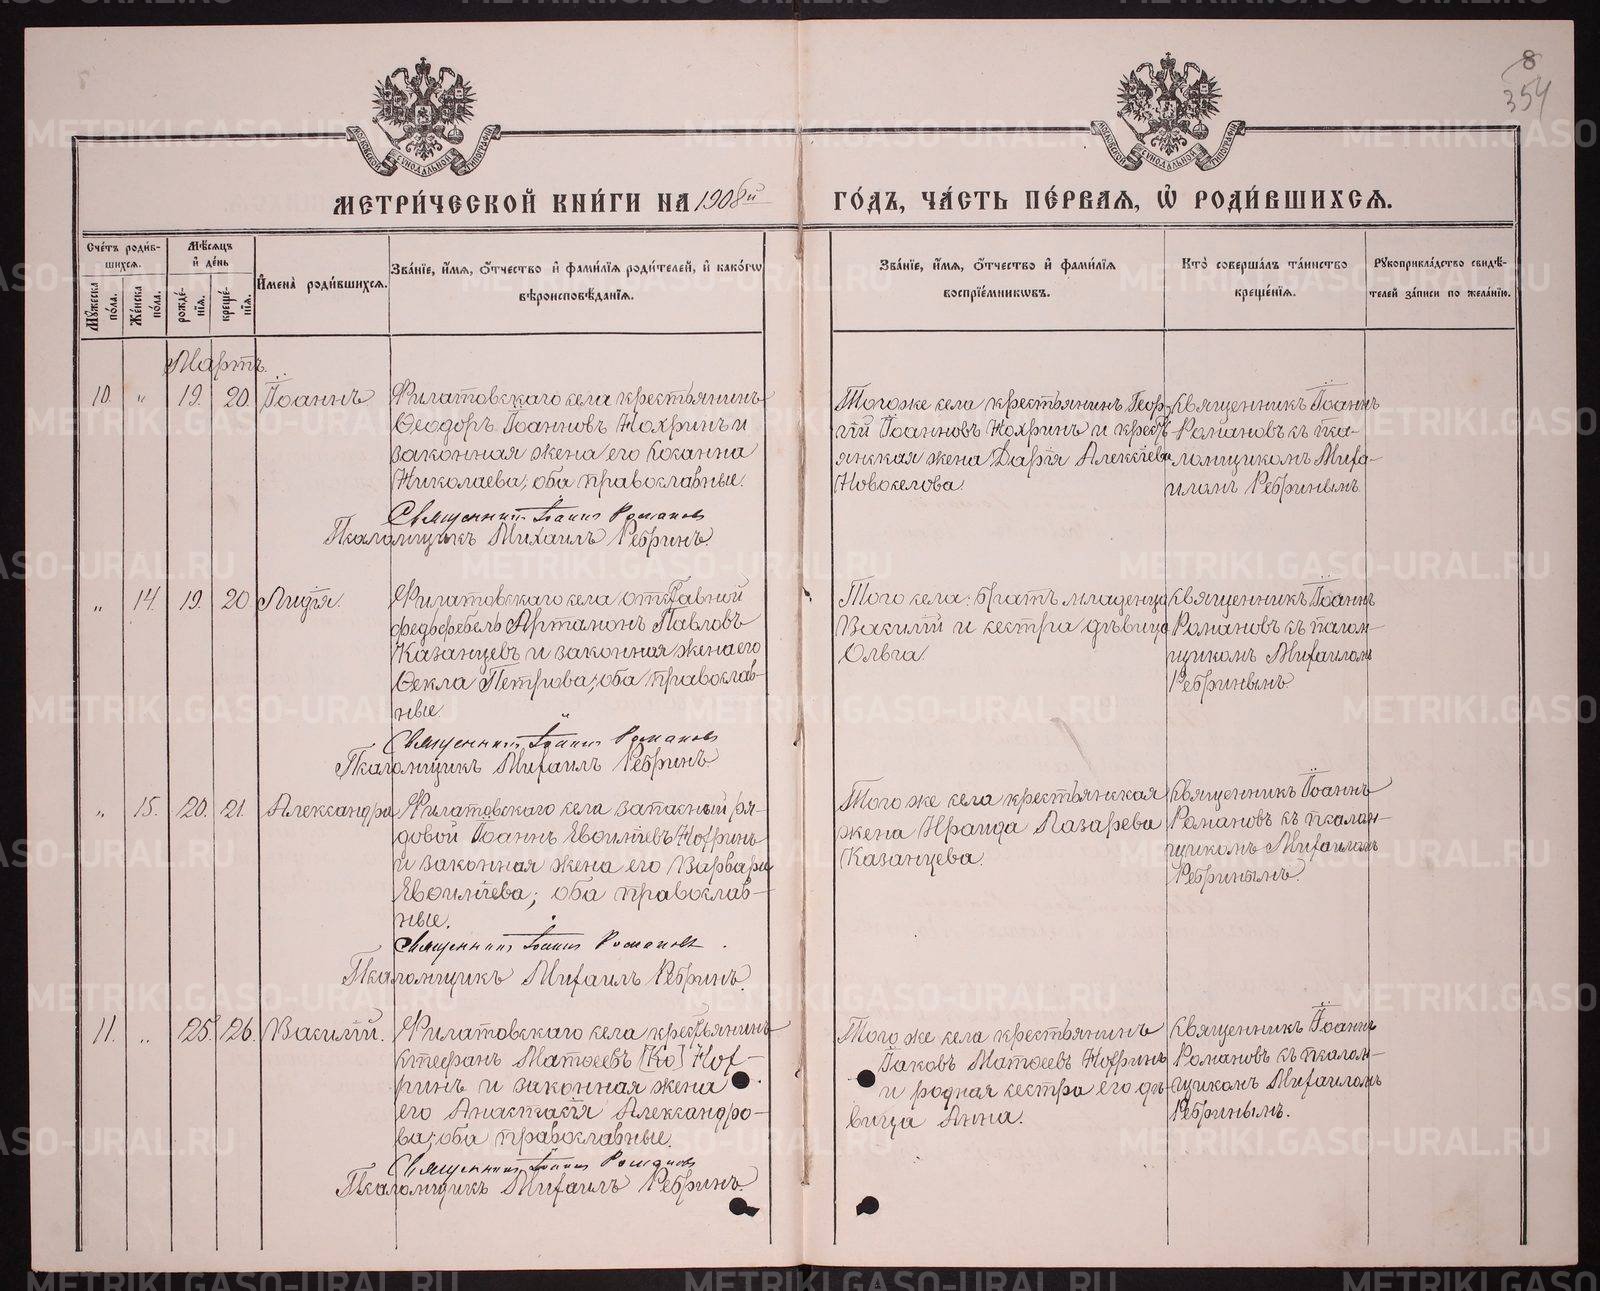 8
354
МЕТРИ́ЧЕСКОЙ КНИ́ГИ НА 1908й
ГО́ДЪ, ЧА́СТЬ ПЕ́РВАЯ, Ѡ҆ РОДИ́ВШИХСЯ.
Сче́тъ роди́в-
шихся.
Мꙋ́жеска по́ла.
Же́нска по́ла.
Мѣ́сяцъ
и҆ де́нь
рожде́-
нїя.
креще́-
нїя.
И҆мена̀ роди́вшихся.
Зва́нїе, и҆́мя, ѻ҆́тчество и҆ фами́лїя роди́телей, и҆ како́гѡ
вѣроисповѣ́данїя.
Зва́нїе, и҆́мя, ѻ҆́тчество и҆ фами́лїя
воспрїе́мникѡвъ.
Кто̀ соверша́лъ та́инство
креще́нїя.
Рꙋкоприкла́дство свидѣ́-
телей за́писи по жела́нїю.
Мартъ.
10. " 19. 20. Іоаннъ
Филатовскаго села крестьянинъ
Ѳеодоръ Іоанновъ Кохринъ и
законная жена его Іоанна
Николаева; оба православные.
Священникъ Іоаннъ Романовъ
Псаломщикъ Михаилъ Ребринъ.
Того же села крестьянинъ Геор-
гій Іоанновъ Кохринъ и крест-
янская жена Дарія Алексіева
Новоселова.
Священникъ Іоаннъ
Романовъ съ пса-
ломщикомъ Миха-
иломъ Ребринымъ.
" 14. 19. 20. Лидія.
Филатовскаго села отставной
федьфебель Артамонъ Павловъ
Казанцевъ и законная жена его
Ѳекла Петрова; оба православ-
ные.
Священникъ Іоаннъ Романовъ
Псаломщикъ Михаилъ Ребринъ
Того села: братъ младенца
Василій и сестра дѣвица
Ольга.
Священникъ Іоаннъ
Романовъ съ псалом-
щикомъ Михаиломъ
Ребринымъ.
" 15. 20. 21. Александра
Филатовскаго села запасный ря-
довой Іоаннъ Евоиліевъ Кохринъ
и законная жена его Варвара
Евоиліева; оба православ-
ные.
Священникъ Іоаннъ Романовъ.
Псаломщикъ Михаилъ Ребринъ.
Того же села крестьянская
жена Ираида Лазарева
Казанцева.
Священникъ Іоаннъ
Романовъ съ псалом-
щикомъ Михаиломъ
Ребринымъ.
11. " 25. 26. Василій.
Филатовскаго села крестьянинъ
Стефанъ Матѳеевъ [Ко] Кох-
ринъ и законная жена
его Анастасія Александро-
ва; оба православные.
Священникъ Іоаннъ Романовъ
Псаломщикъ Михаилъ Ребринъ.
Того же села крестьянинъ
Іаковъ Матѳеевъ Кохринъ
и родная сестра его дѣ-
вица Анна.
Священникъ Іоаннъ
Романовъ съ псалом-
щикомъ Михаиломъ
Ребринымъ.
METRIKI.GASO-URAL.RU